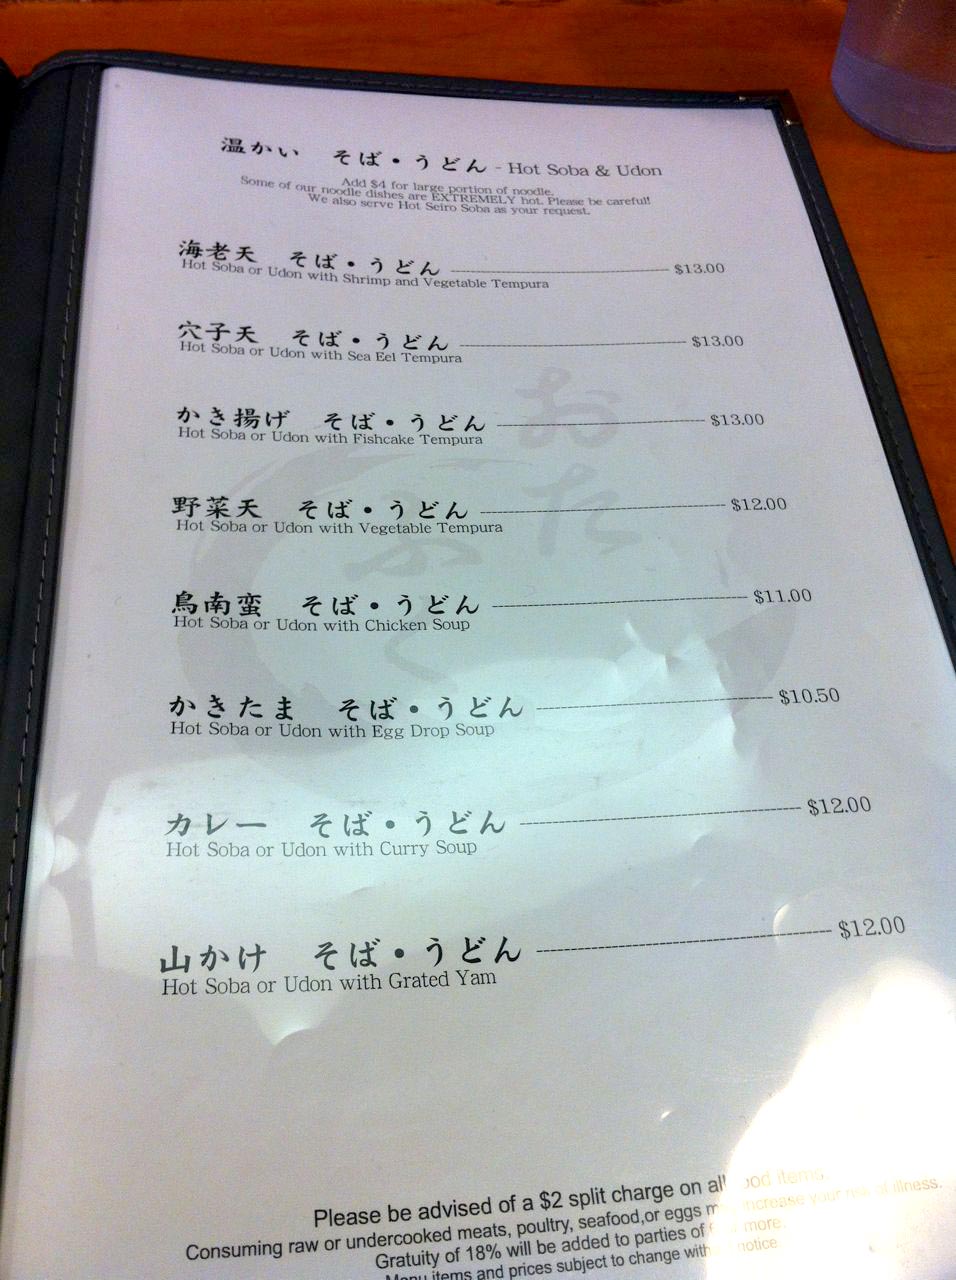 温かい　そば・うどん - Hot Soba & Udon
Add $4 for large portion of noodle.
Some of our noodle dishes are EXTREMELY hot. Please be careful!
We also serve Hot Seiro Soba as your request.
海老天　そば・うどん $13.00
Hot Soba or Udon with Shrimp and Vegetable Tempura
穴子天　そば・うどん $13.00
Hot Soba or Udon with Sea Eel Tempura
かき揚げ　そば・うどん $13.00
Hot Soba or Udon with Fishcake Tempura
野菜天　そば・うどん $12.00
Hot Soba or Udon with Vegetable Tempura
鳥南蛮　そば・うどん $11.00
Hot Soba or Udon with Chicken Soup
かきたま　そば・うどん $10.50
Hot Soba or Udon with Egg Drop Soup
カレー　そば・うどん $12.00
Hot Soba or Udon with Curry Soup
山かけ　そば・うどん $12.00
Hot Soba or Udon with Grated Yam
Please be advised of a $2 split charge on all food items.
Consuming raw or undercooked meats, poultry, seafood,or eggs may increase your risk of illness.
Gratuity of 18% will be added to parties of more.
Menu items and prices subject to change without notice